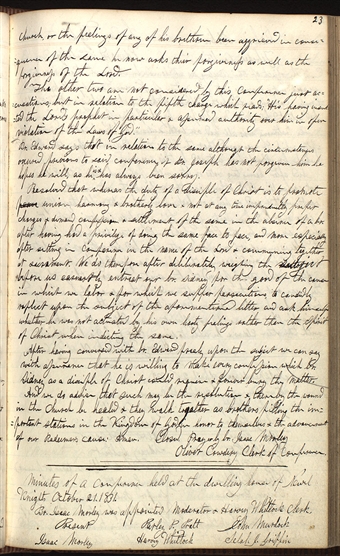 23
Church, or the feelings of any of his brethren been aggrieved in conse-
quence of the same he now asks their forgiveness as well as the
forgiveness of the Lord.
The other two are not considered by this Conference just ac-
cusations: but in relation to the fifth charge which reads: His having insul-
ted the Lord's prophet in particular & assumed authority over him in open
violation of the Laws of God:
Br. Edward says that in relation to the same although the circumstance
occured previous to said conference, if Br. Joseph has not forgiven him he
hopes he will, as he has always been sorry.
Resolved that whereas the duty of a disciple of Christ is to promote
union harmony & brotherly love & not at any time impudently prefer
charges & demand confession & settlement of the same in the absence of a br.
after having had a privilege of doing the same face to face, and more especially
after sitting in Conference in the name of the Lord & communing together
at sacrament. We do therefore after deliberately weighing the subject
before us earnestly entreat our br. Sidney for the good of the cause
in which we labor & for which we suffer persecutions to candidly
reflect upon the subject of the aforementioned letter and ask himself
whether he was not actuated by his own hasty feelings rather than the Spirit
of Christ when inditing the same.
After having conversed with br. Edward freely upon the subject we can say
with assurance that he is willing to make every confession which br.
Sidney as a disciple of Christ could require & forever bury the matter.
And we do ardently ask that such may be the resolution & thereby the wound
in the Church be healed & they walk together as brothers filling the im-
portant stations in the Kingdom of God in honor to themselves & the advancement
of our Redeemer's cause: Amen. Closed Prayer by br. Isaac Morley
Oliver Cowdery Clerk of Conference.
Minutes of a Conference held at the dwelling house of Newel
Knight October 21. 1831.
Br. Isaac Morley was appointed Moderator & Harvey Whitlock Clerk.
Present Parley P. Pratt John Murdock
Isaac Morley Harvey Whitlock Selah J. Griffin